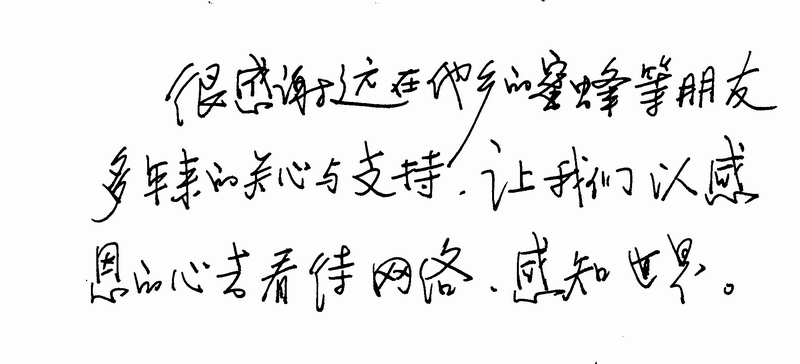 很感谢远在他乡的蜜蜂等朋友
多年来的关心与支持，让我们以感
恩的心去看待网络、感知世界。